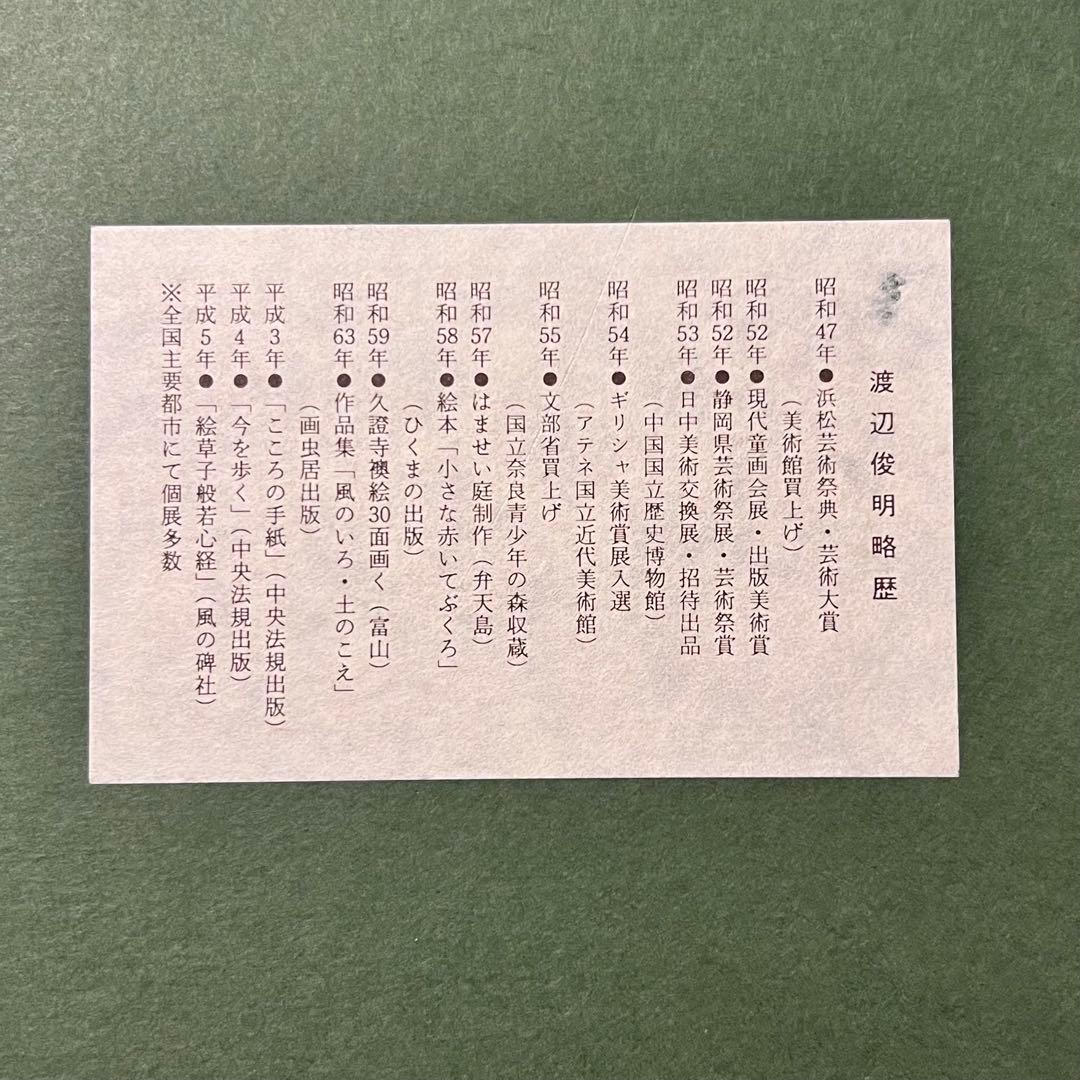 渡辺俊明略歴
昭和47年●浜松芸術祭典・芸術大賞
(美術館買上げ)
昭和52年●現代童画会展・出版美術賞
昭和52年●静岡県芸術祭展・芸術祭賞
昭和53年●日中美術交換展・招待出品
(中国国立歴史博物館)
昭和54年●ギリシャ美術賞展入選
(アテネ国立近代美術館)
昭和55年●文部省買上げ
(国立奈良青少年の森収蔵)
昭和57年●はませい庭制作(弁天島)
昭和58年●絵本「小さな赤いてぶくろ」
(ひくまの出版)
昭和59年●久證寺襖絵30面画く(富山)
昭和63年●作品集「風のいろ・土のこえ」
(画虫居出版)
平成3年●「こころの手紙」(中央法規出版)
平成4年●「今を歩く」(中央法規出版)
平成5年●「絵草子般若心経」(風の碑社)
※全国主要都市にて個展多数